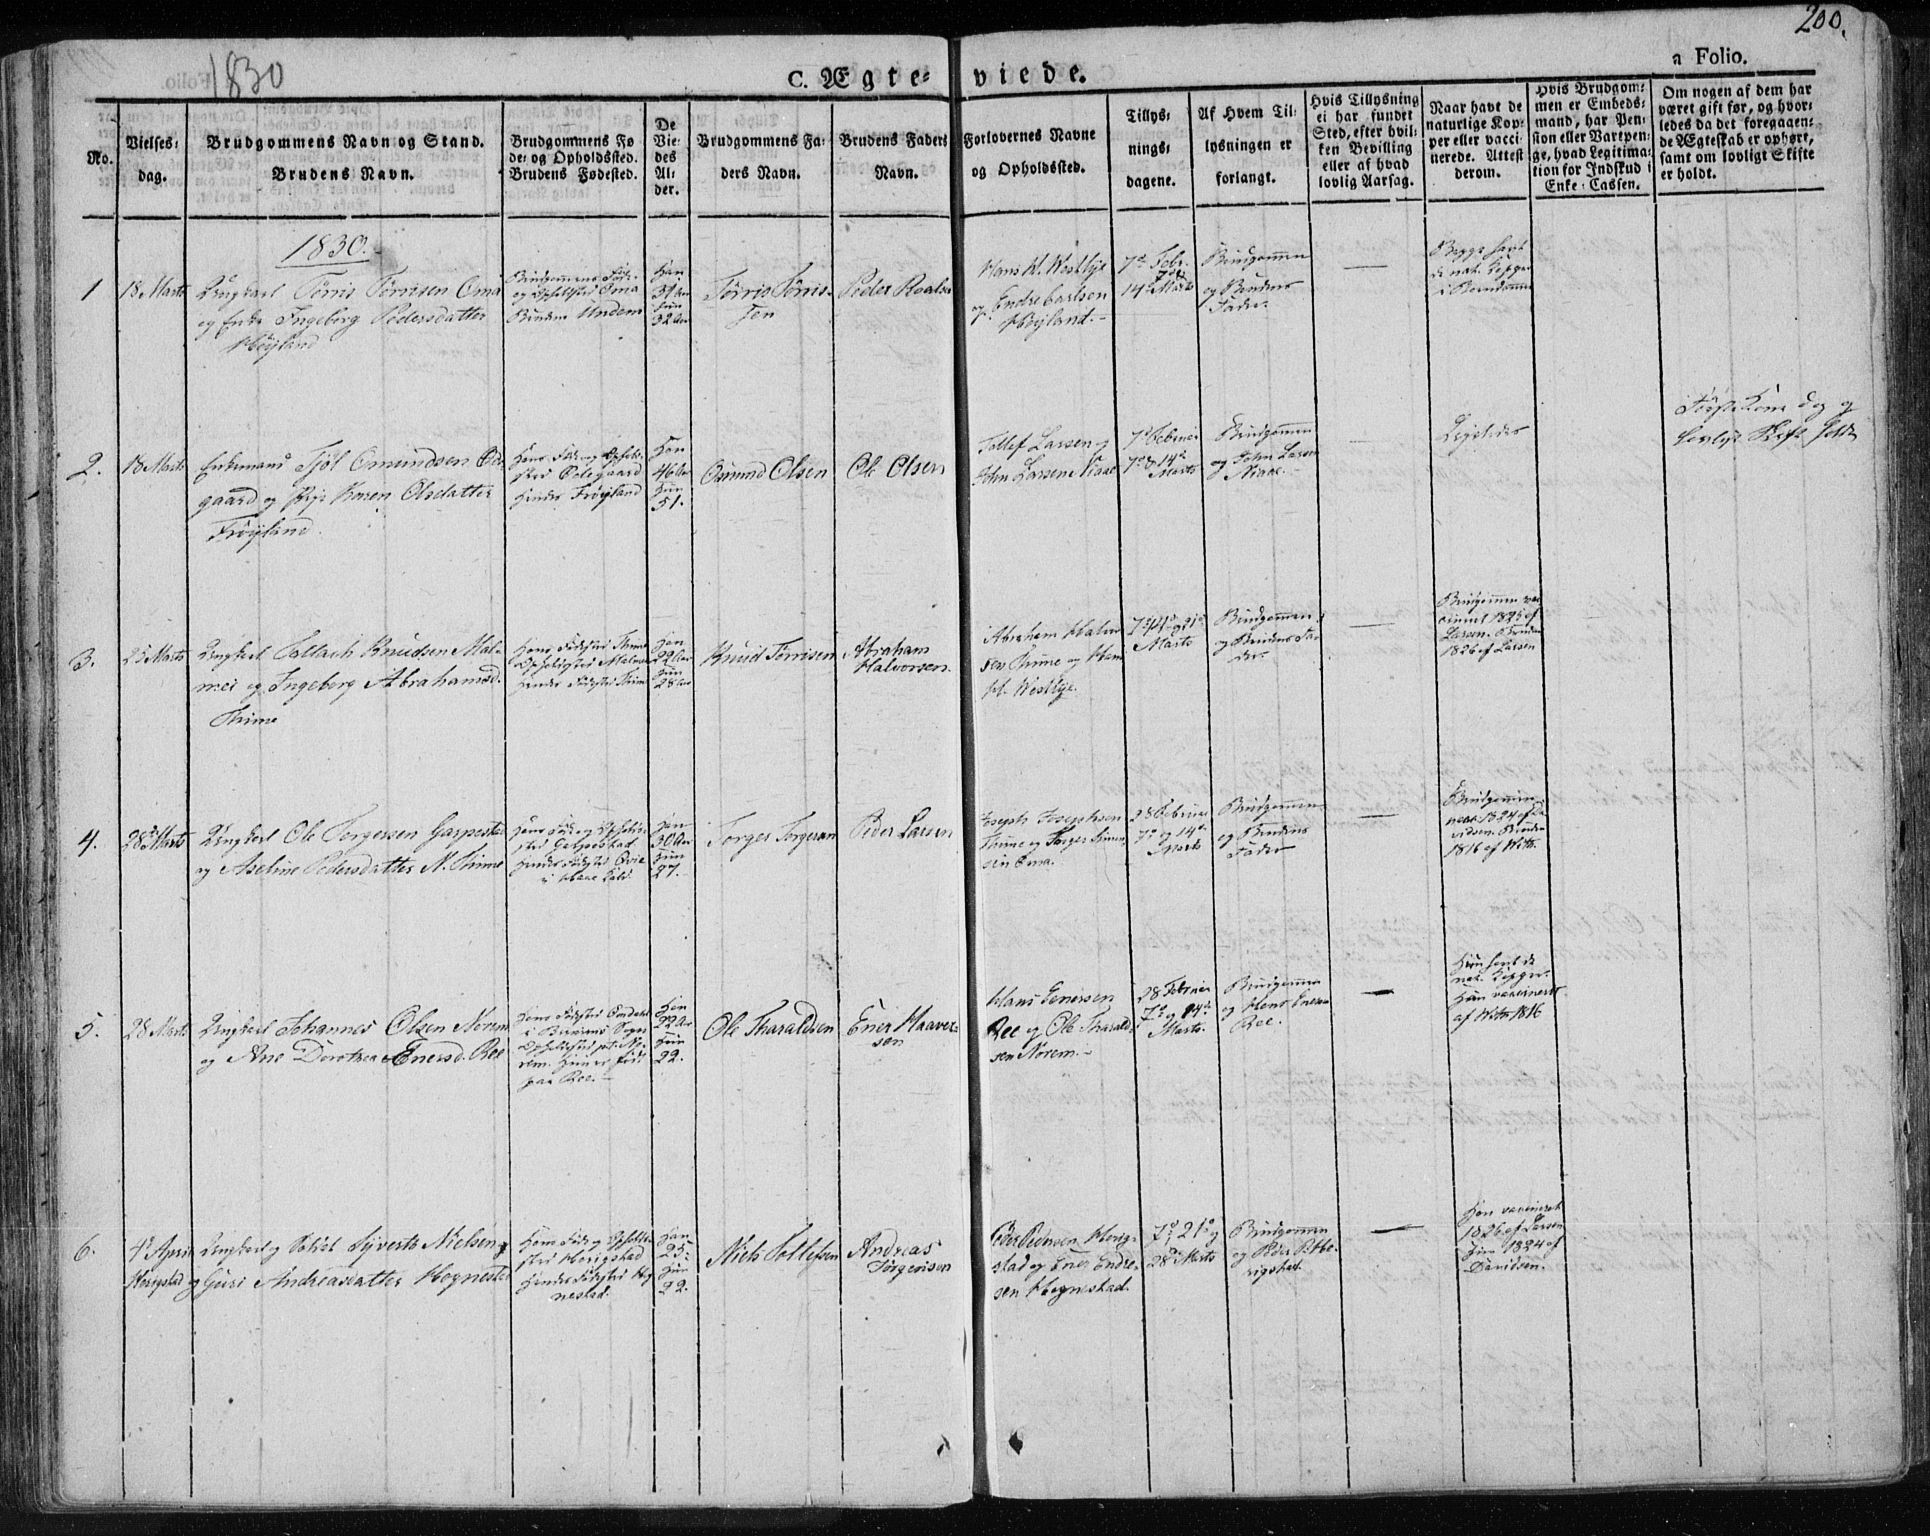 200.
1830
C. Ægte-
viede.
a Folio.
No.
Vielses-
dag.
Brudgommens Navn og Stand.
Brudens Navn.
Brudgommens Fø
de- og Opholdssted.
Brudens Fødested.
De
Vie-
des
Al-
der.
Brudgommens Fa-
ders Navn.
Brudens Faders
Navn.
Forlovernes Navne
og Opholdssted.
Tillys-
nings-
dagene.
Af Hvem Til-
lysningen er
forlangt.
Hvis Tillysning
ei har fundet
Sted, efter hvil-
ken Bevilling
eller af hvad
lovlig Aarsag.
Naar havt de
naturlige Kop-
per eller vacci-
nerede. Attest
derom.
Hvis Brudgom-
men er Embeds-
mand, har Pen-
sion eller Vartpen-
ge, hvad Legitima-
tion for Indskud i
Enke-Cassen.
Om nogen af dem har
været gift før, og hvor-
ledes da det foregaaen-
de Ægteskab er ophørt,
samt om lovligt Skifte
er holdt.
1830.
1
18 Marts
Ungkarl Tørris Tørrisen Oma
og Enke Ingeborg Pedersdatter
Høyland
Brudgommens Føde-
og Opholdsted Oma
Brudens Undem
Han
31 Aar
Hun
32 Aar
Tørris Tørris-
sen
Peder Roalsen
Hans H. Westlye
og Endre Bartsen
Høyland.
7de Febr.
7de &
14de Marts
Brudgommen
og Brudens
Fader.
Begge havt
de nat. Kopper
i Barndommen
2.
18 Marts
Enkemand Tjøl Omundsen Øde-
gaard og Pige Karen Olsdatter
Frøyland.
Hans Føde og Opholds-
sted Ødegaard
Hendes Frøyland
Han
46 Aar
Hun
51.
Osmund Olsen
Ole Olsen
Tollef Larsen og
John Larsen Niaae
7de Februar
7de & 14de
Marts
Brudgommen
og John Larsen
Niaae.
Ligeledes
Første Kone død og
Lovligt Skifte holdt
3.
25 Marts
Ungkarl Tollach Knudsen Mal-
mei og Ingeborg Abrahamsd.
Thime
Hans Fødested Thime
Opholdsted Malmei
Hendes Fødested Thime
Han
22 Aar
Hun
28 Aar
Knud Tørrisen
Abraham
Halvorsen.
Abraham Halvor-
sen Thime og Hans
H. Westlye.
7de 14de og 21de
Marts
Brudgommen
og Brudens Fa-
der.
Brudgommen vac-
cineret 1825 af
Larsen. Bruden
1826 af Larsen
4.
28 Marts
Ungkarl Ole Torgersen Gaspestad
og Aseline Pedersdatter N. Thime
Hans Føde og Opholds-
sted Gaspestad
Hendes Fødested Qvie
i Haae Sogn.
Han
30 Aar
Hun
27.
Torger Torgersen
Peder Larsen
Joseph Josephsen
Thime og Torger Simon-
sen Oma.
28 Februar
7de og 14de
Marts
Brudgommen
og Brudens
Fader
Brudgommen
vacc. 1824 af Da-
vidsen. Bruden
1816 af Witth.
5.
28 Marts
Ungkarl Johannes Olsen Norem
og Ane Dorothea Enersd. Ree
Opholdsted
paa Ree.
Han
22 Aar
Hun
22.
Ole Tharaldsen
Ener Haaver-
sen
Hans Enersen
Ree og Ole Tharald-
sen Norem.
28 Februar
7de og 14de
Marts.
Brudgommen
og Hans Enersen
Ree.
Han havt de
nat. Kopper.
Hun vaccineret
af Witth 1816
6.
4de April
Herigstad
Ungkarl og Soldat Syvert Nielsen
og Guri Andreasdatter Hognestad
Hans Føde og Opholds-
sted Herigstad
Hendes Fødested Hog-
nestad.
Han
25.
Hun
22.
Niels Tollefsen
Andreas
Torgersen
Peder Pedersen Herig-
stad og Ener Endre-
sen Hognestad.
7de 21de og
28de Marts
Brudgommen
og Peder P. He-
rigstad.
Han vaccineret
1826 af Larsen
Hun 1824 af
Davidsen.